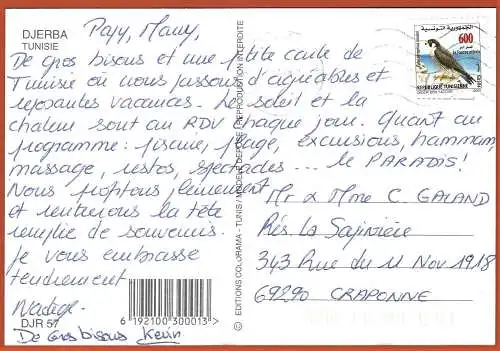 DJERBA
TUNISIE
Papy, Mamy,
De gros bisous et une petite carte de
Tunisie où nous passons d'agréables et
reposantes vacances. Le soleil et la
chaleur sont au RDV chaque jour. Quant au
programme : piscine, plage, excursions, hammam,
massage, restos, spectacles... le PARADIS!
Nous profitons pleinement
et rentrerons la tête
remplie de souvenirs.
Je vous embrasse
tendrement
Nadège
DJR 57
De Gros bisous Kevin
6 192100 300013 >
© EDITIONS COLORAMA - TUNIS / MODELE DEPOSE / REPRODUCTION INTERDITE
الجمهورية التونسية
600
REPUBLIQUE TUNISIENNE
Mr & Mme C GALAND
Rés La Sapinière
343 Rue du 11 Nov 1918
69290 CRAPONNE